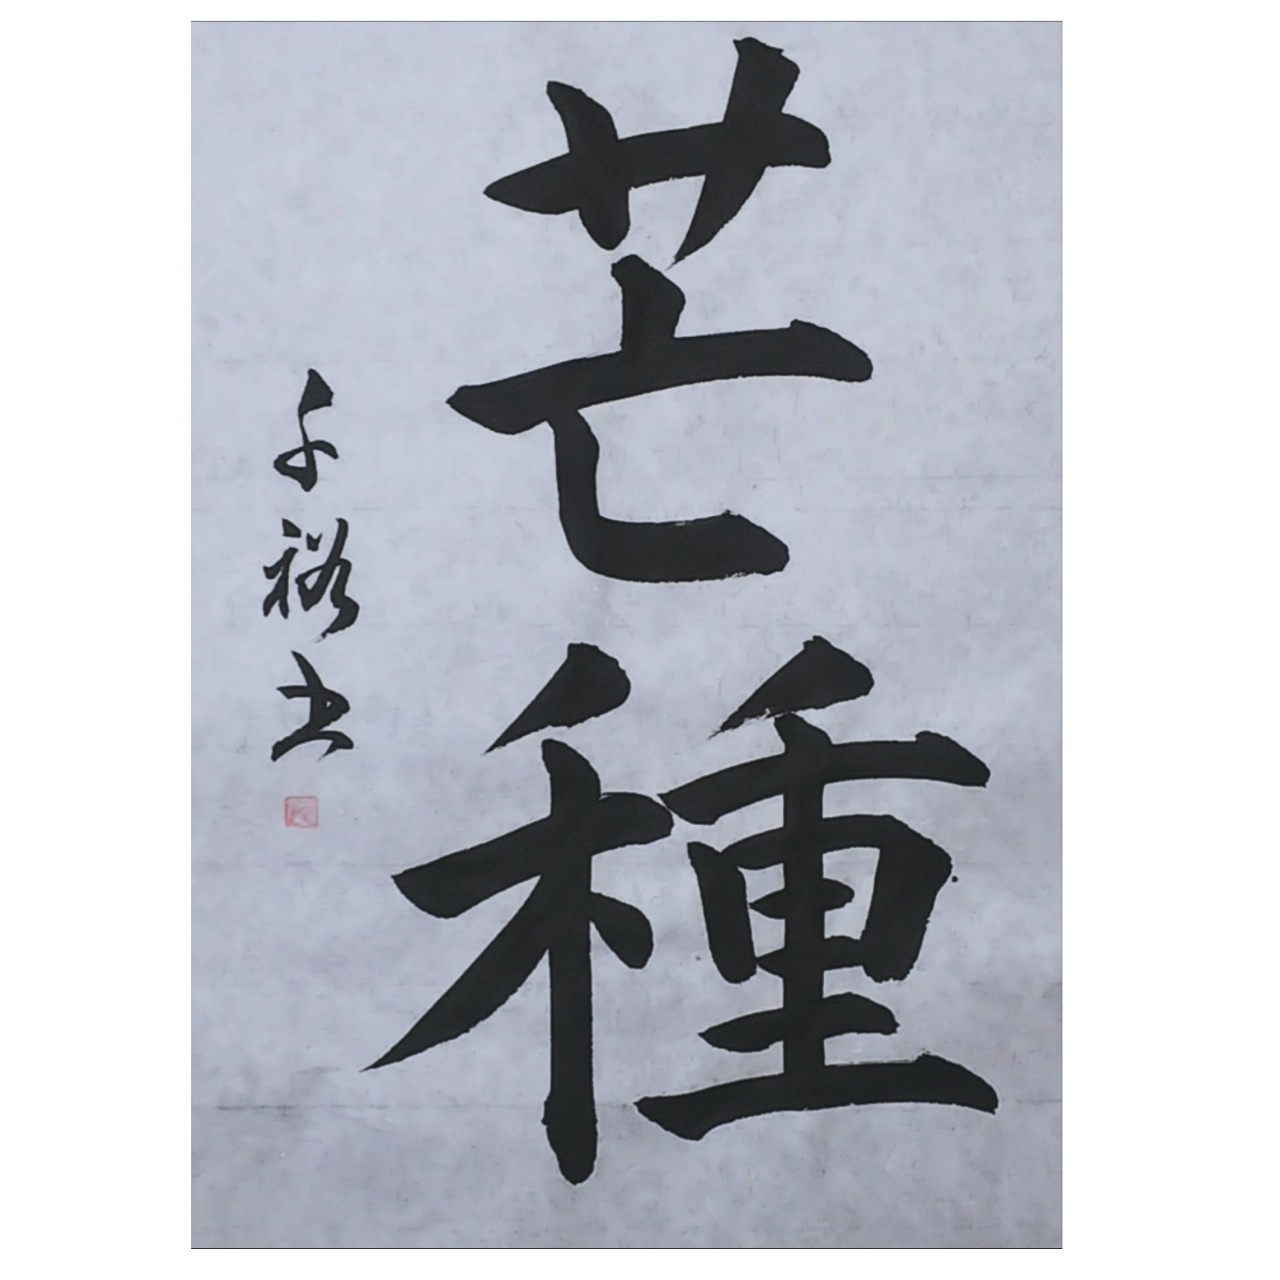 芒種
千裕书